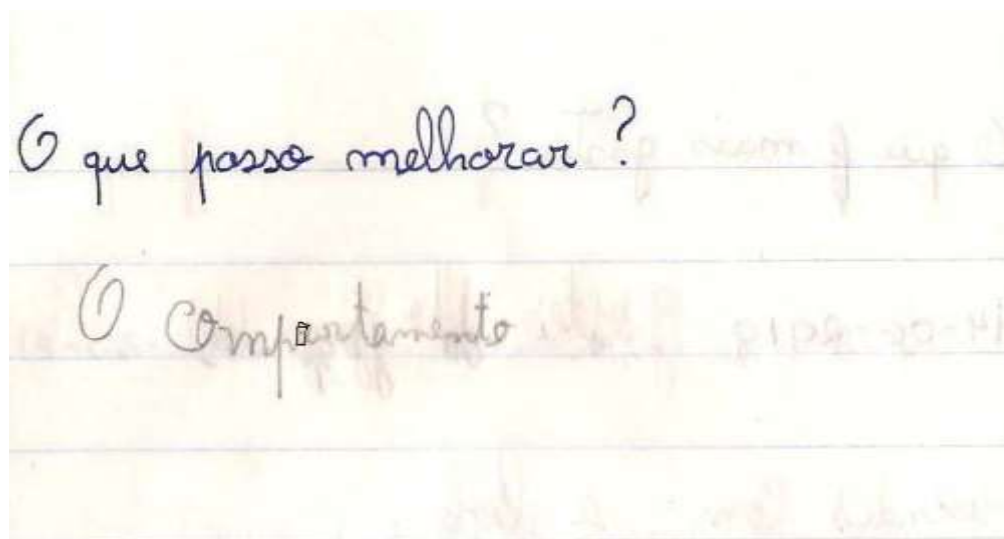 O que posso melhorar?
O comportamento